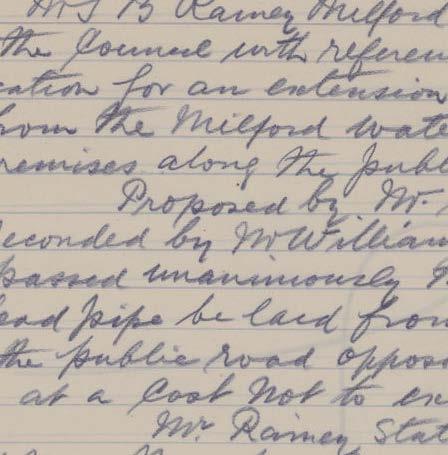 Mr S B Rainey Milford
the Council with referen
cation for an extension
from the Milford wate
remises along the publ
Proposed by Mr.
Seconded by Mr William
passed unanimously
lead pipe be laid from
the public road opposi
at a cost not to ex
Mr. Rainey stat